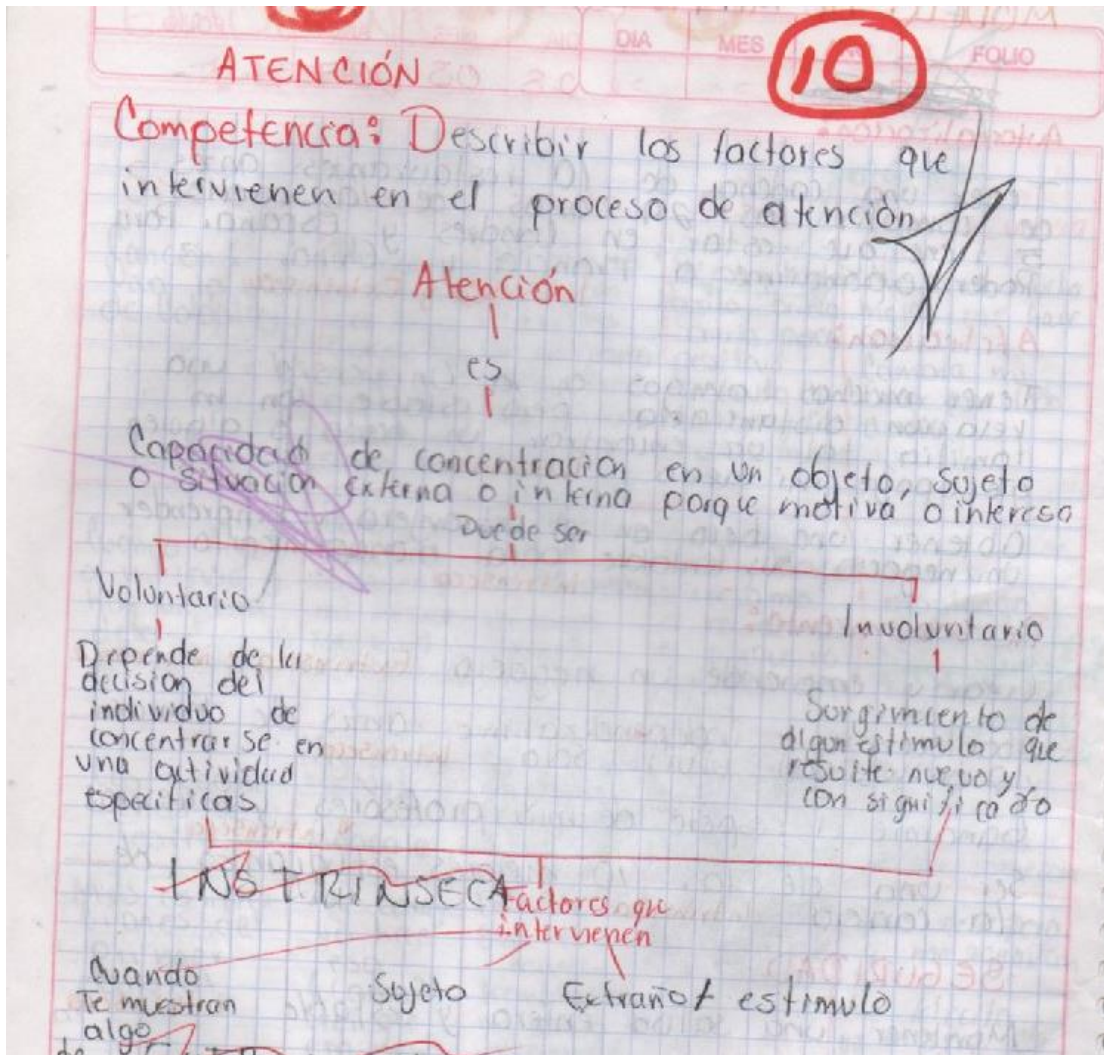 DIA MES FOLIO
10
ATENCIÓN
Competencia: Describir los factores que
intervienen en el proceso de atención
Atención
es
Capacidad de concentración en un objeto, sujeto
o situación externa o interna porque motiva o interesa
Puede ser
Voluntario
Involuntario
Depende de la
decisión del
individuo de
concentrarse en
una actividad
especificas
Surgimiento de
algun estimulo que
resulte nuevo y
con significado
INSTRINSECA
Factores que
intervienen
Cuando
Te muestran
algo
Sujeto
Extraño / estimulo
de